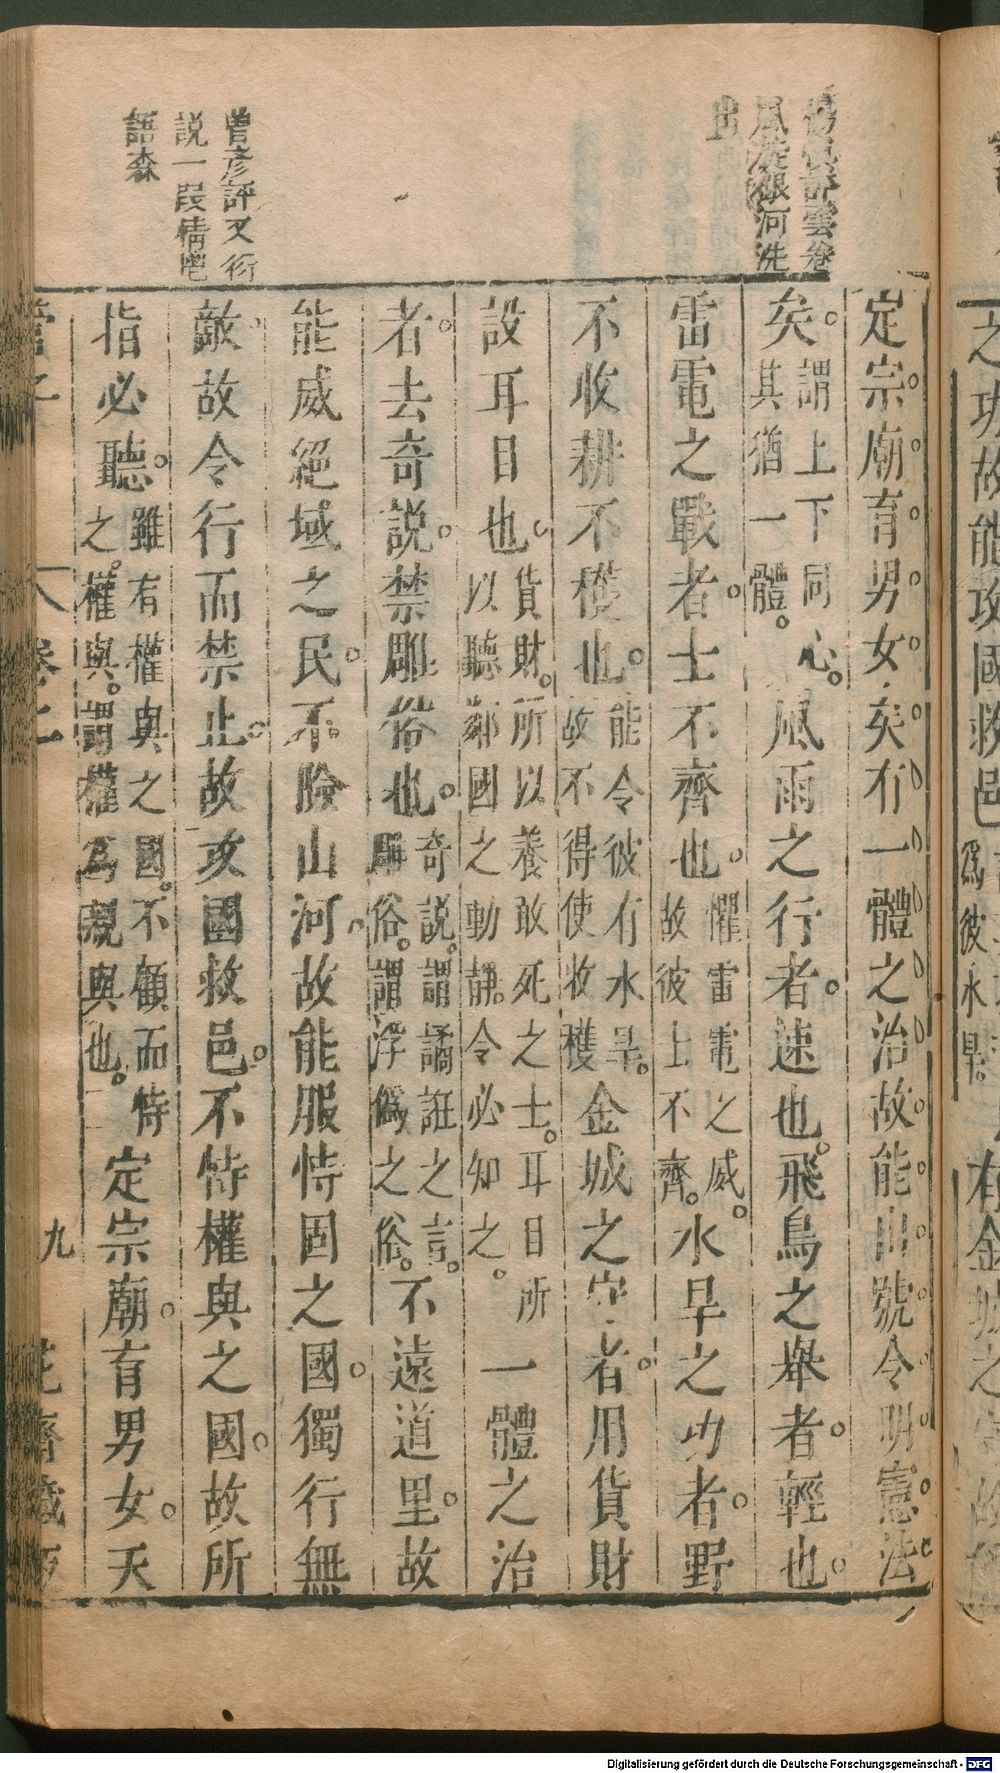 評雲卷
風旋銀河洗
出
曾彥評又衍
說一段情
語森
定宗廟。育男女矣。有一體之治。故能出號令。明憲法
矣。謂上下同心。其猶一體。風雨之行者。速也。飛鳥之舉者。輕也。
雷電之戰者。士不齊也。懼雷電之威。故彼士不齊。水旱之功者。野
不收耕不穫也。能令彼有水旱。故不得使收穫。金城之守者。用貨財
設耳目也。貨財。所以養敢死之士。耳目所以聽鄰國之動靜。令必知之。一體之治
者。去奇說。禁雕俗也。奇說。謂譎誑之言。雕俗。謂浮偽之俗。不遠道里。故
能威絕域之民。不險山河。故能服恃固之國。獨行無
敵。故令行而禁止。故攻國救邑。不恃權與之國。故所
指必聽。雖有權與之國。不顧而恃之。權與。謂權為親與也。定宗廟。育男女。天
管子 卷二 九 花齋藏版
之功故能攻國救邑
為彼水旱。
有金城之守故能
Digitalisierung gefördert durch die Deutsche Forschungsgemeinschaft - DFG